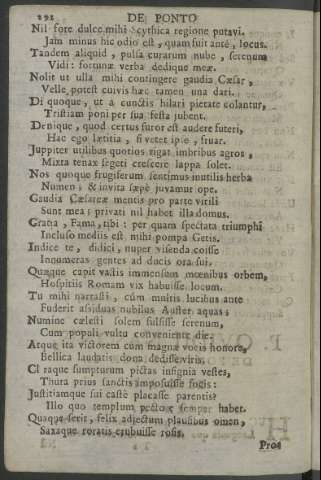 292 DE PONTO
Nil fore dulce mihi Scythica regione putavi.
Jam minus hic odio est, quam fuit ante, locus.
Tandem aliquid, pulsa curarum nube, serenum
Vidi: fortunæ verba dedique meæ.
Nolit ut ulla mihi contingere gaudia Cæsar,
Velle potest cuivis hæc tamen una dari.
Di quoque, ut a cunctis hilari pietate colantur,
Tristiam poni per sua festa jubent.
Denique, quod certus furor est audere fateri,
Hac ego lætitia, si vetet ipse, fruar.
Juppiter utilibus quotios rigat imbribus agros,
Mixta tenax segeti crescere lappa solet.
Nos quoque frugiferum sentimus inutilis herba
Numen; & invita sæpè juvamur ope.
Gaudia Cæsareæ mentis pro parte virili
Sunt mea; privati nil habet illa domus.
Gratia, Fama, tibi: per quam spectata triumphi
Incluso mediis est mihi pompa Getis.
Indice te, didici, nuper visenda coisse
Innumeras gentes ad ducis ora sui.
Quæque capit vastis immensum mœnibus orbem,
Hospitiis Romam vix habuisse locum.
Tu mihi narrasti, cùm multis lucibus ante
Fuderit assiduas nubilus Auster aquas;
Numine cælesti solem fulsisse serenum,
Cum populi vultu conveniente die:
Atque ita victorem cum magnæ vocis honore,
Bellica laudatis dona dedisse viris.
Cl raque sumpturum pictas insignia vestes,
Thura prius sanctis imposuisse fogis:
Justitiamque sui castè placasse parentis?
Illo quo templum pectore semper habet.
Quaque ierit, felix adjectum plausibus omen,
Saxaque roratis erubuisse rosis.
Pro&